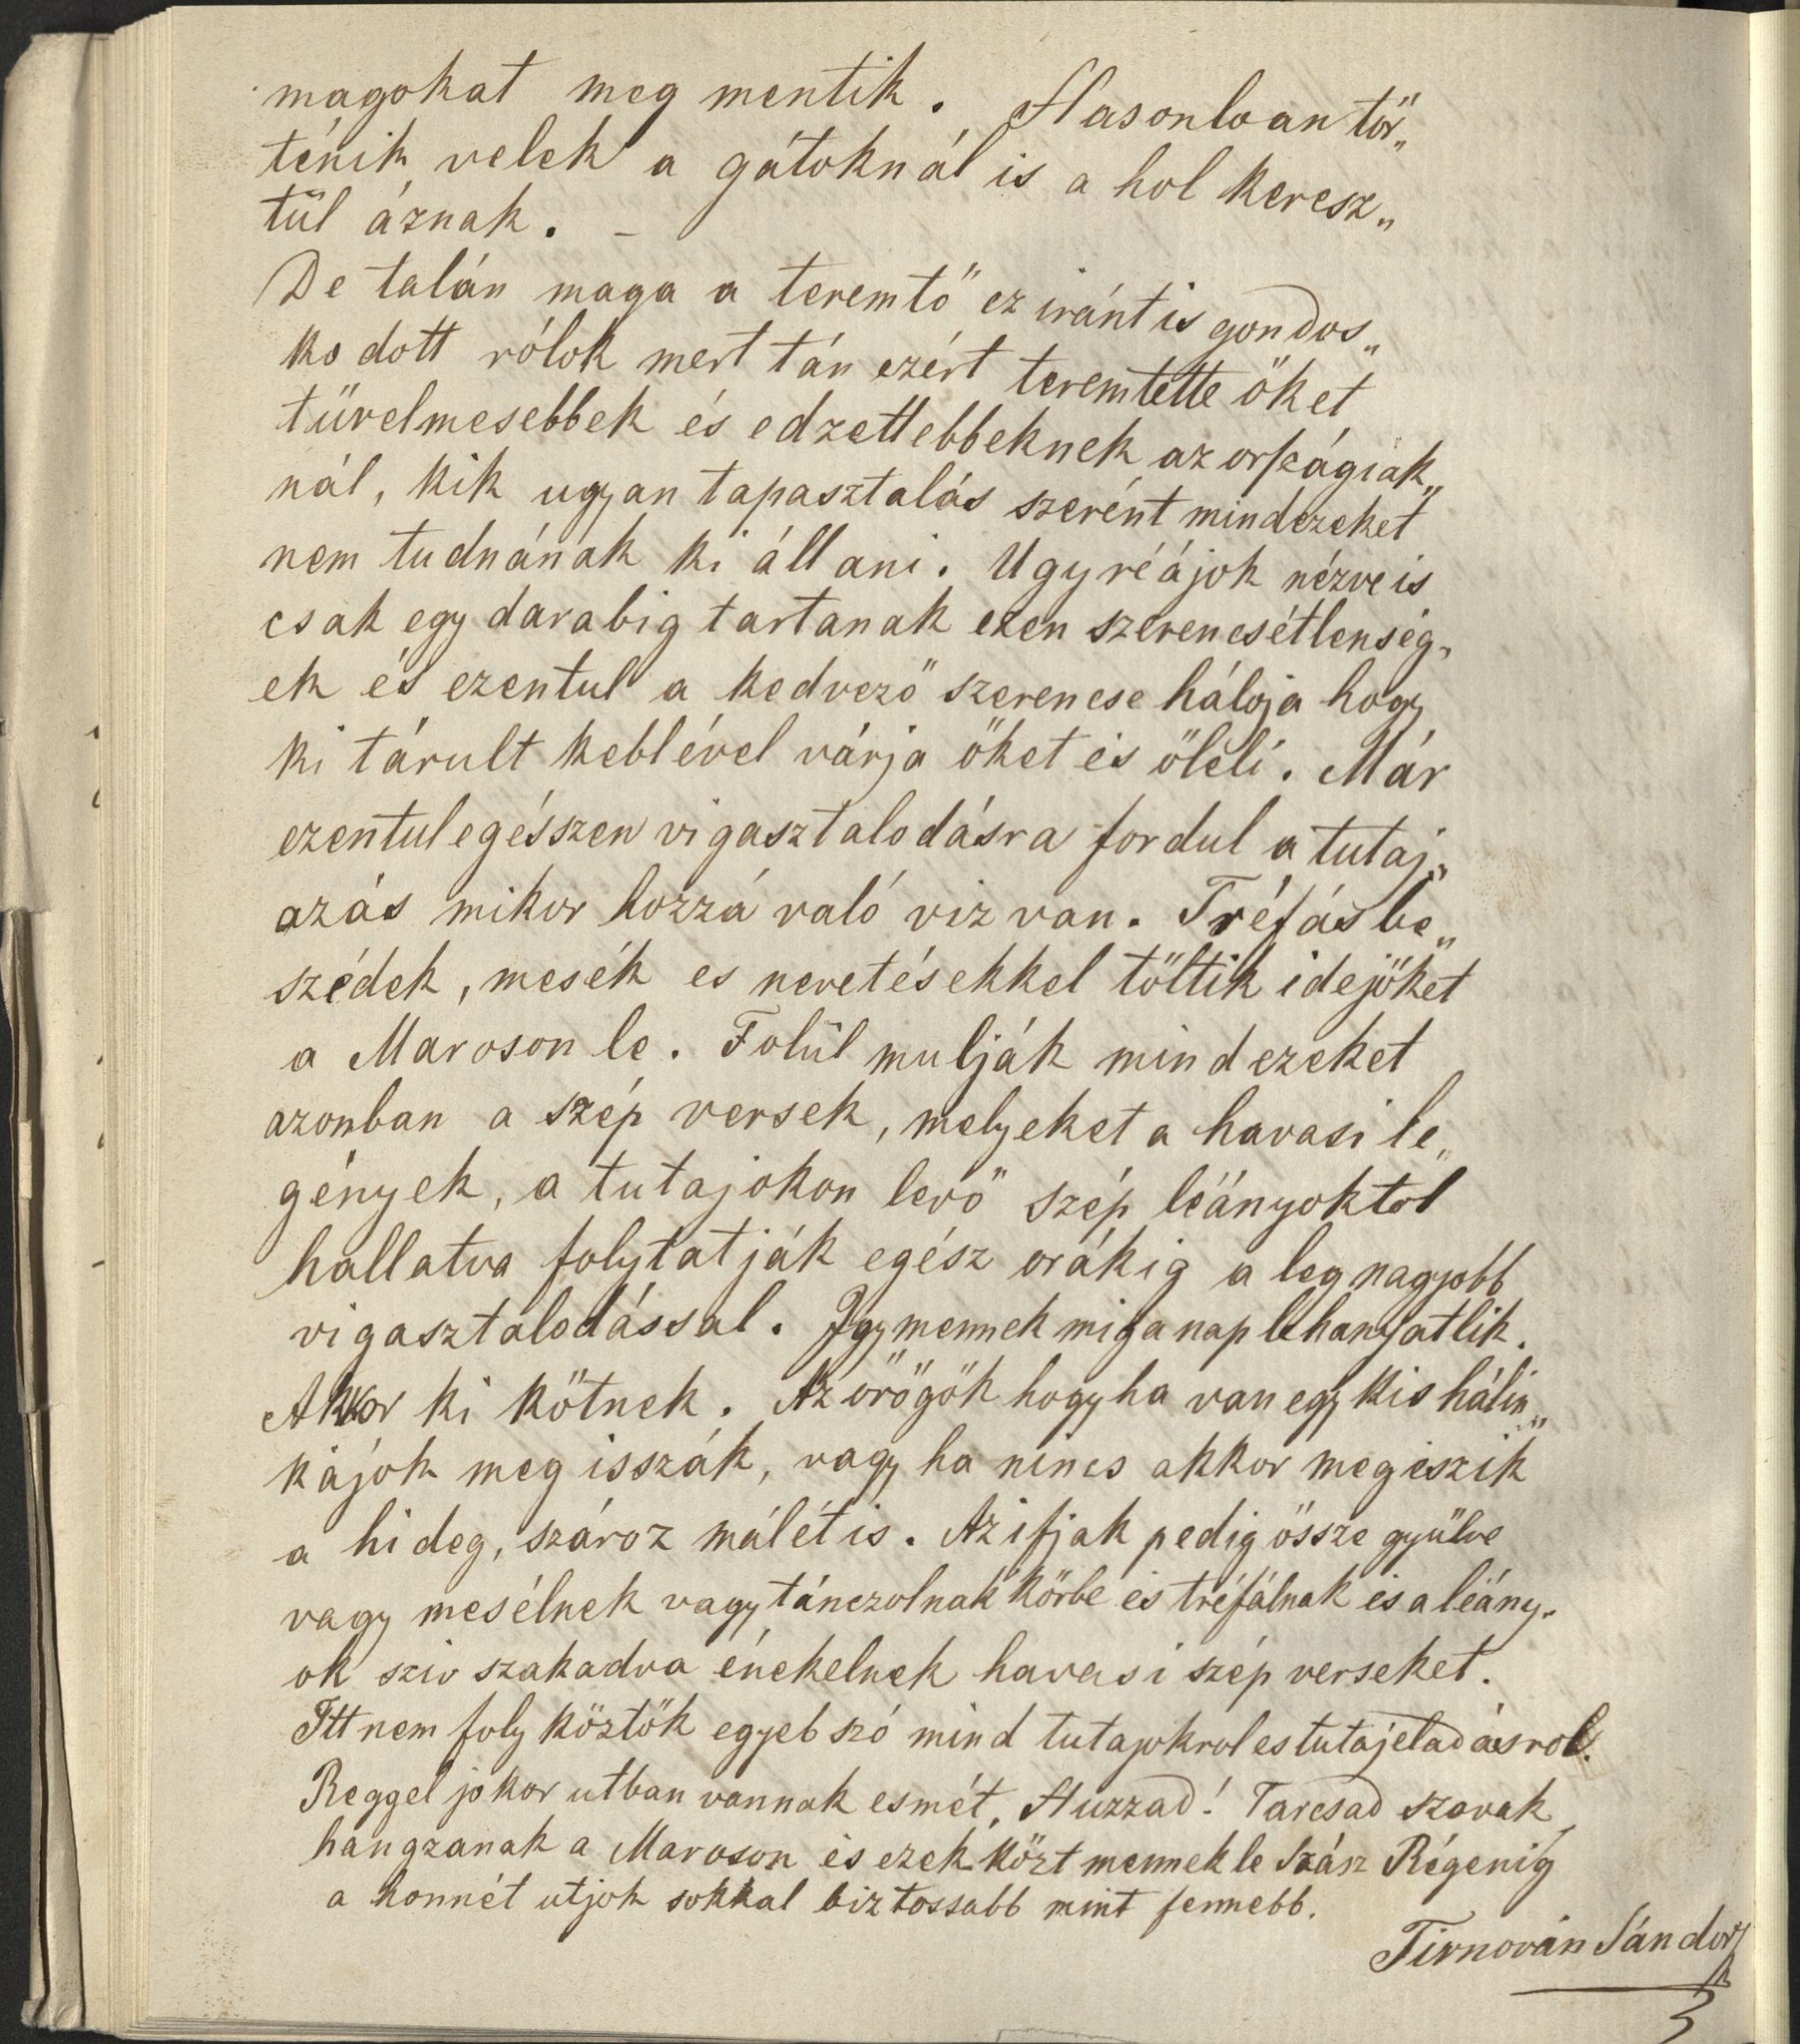 magokat meg mentik. Hasonloan tör„
ténik velek a gátoknál is a hol keresz„
tül áznak. –
De talán maga a teremtő ez iránt is gondos„
ko dott rólok mert tán ezért teremtette őket
türelmesebbek és edzettebbeknek az orſzágiak„
nál, kik ugyan tapasztalás szerént mindezeket
nem tudnának ki állani. Ugy réájok nézve is
csak egy darabig tartanak ezen szerencsétlenség„
ek és ezentul a kedvező szerencse hálója hogy
ki tárult keblével várja őket és öleli. Már
ezentul egészszen vigasztalodásra fordul a tutaj„
azás mikor hozzá való viz van. Tréfás be„
szédek, mesék es nevetésekkel töltik idejöket
a Maroson le. Folül mulják mind ezeket
azonban a szép versek, melyeket a havasi le„
gények, a tutajokon levő szép léányoktol
hallatva folytatják egész orákig a leg nagyobb
vigasztalodással. Igy mennek mig a nap lehanyatlik.
Akkor ki kötnek. Az örögök hogy ha van egy kis hálin„
kájok meg isszák, vagy ha nincs akkor megeszik
a hideg, szároz málét is. Az ifjak pedig össze gyülve
vagy mesélnek vagy tánczolnak körbe és tréfálnak és a léány„
ok sziv szakadva énekelnek havasi szép verseket.
Itt nem foly köztök egyeb szó mind tutajokrol es tutajeladásrol.
Reggel jokor utban vannak esmét, Huzzad! Tarcsad szavak
hangzanak a Maroson és ezek közt mennek le Szász Régenig
a honnét utjok sokkal biztossabb mint fennebb.
Tirnován Sándor